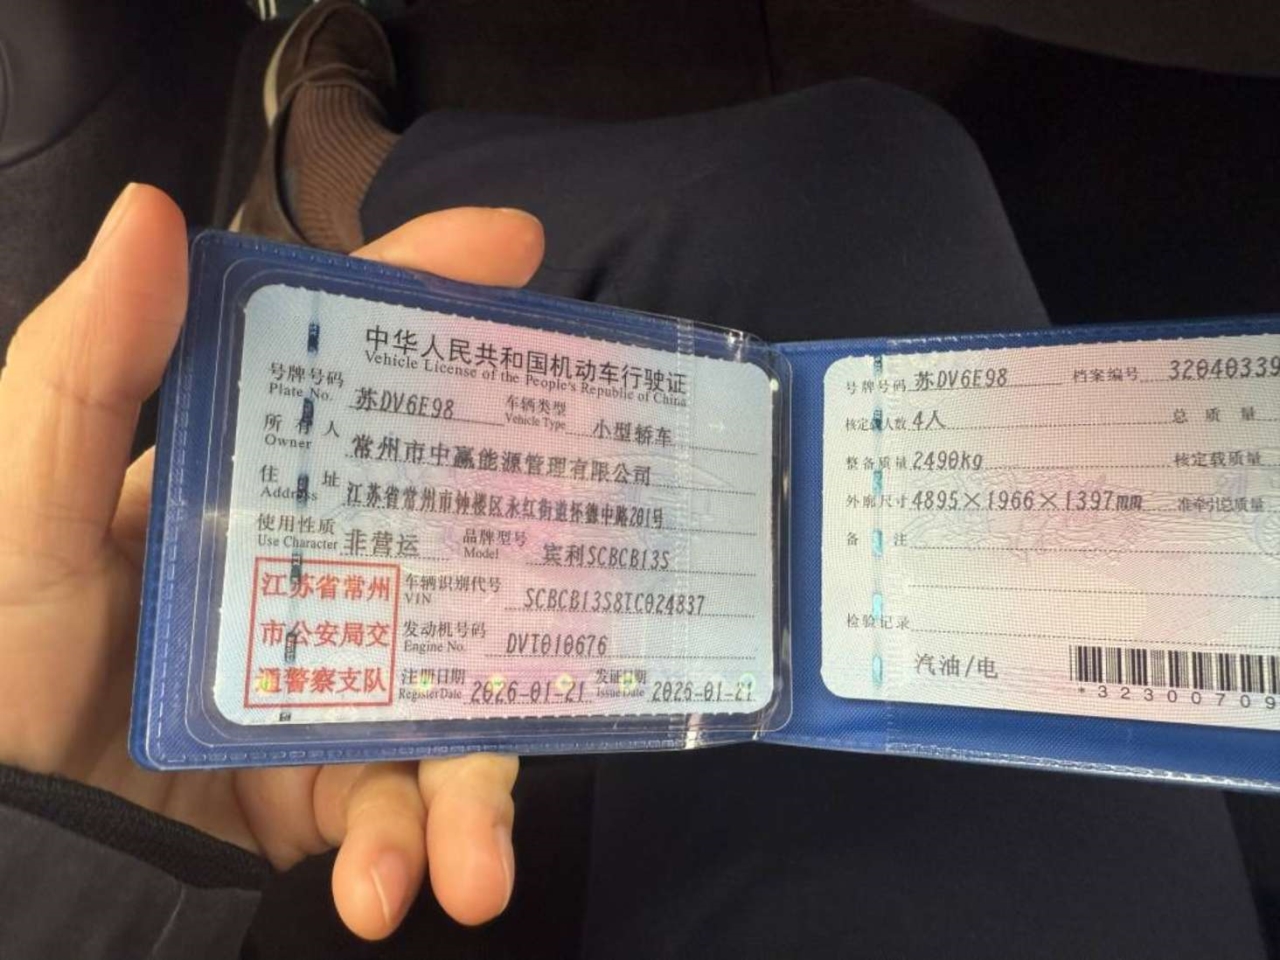 中华人民共和国机动车行驶证
Vehicle License of the People's Republic of China
号牌号码 苏DV6E98 车辆类型 小型轿车
Plate No. Vehicle Type
所有人 常州市中赢能源管理有限公司
Owner
住址 江苏省常州市钟楼区永红街道怀德中路201号
Address
使用性质 非营运 品牌型号 宾利SCBCB13S
Use Character Model
江苏省常州
市公安局交
通警察支队
车辆识别代号 SCBCB13S8TC024837
VIN
发动机号码 DVT010676
Engine No.
注册日期 2026-01-21 发证日期 2026-01-21
Register Date Issue Date
号牌号码 苏DV6E98 档案编号 32040339
核定载人数 4人 总质量
整备质量 2490kg 核定载质量
外廓尺寸 4895×1966×1397mm 准牵引总质量
备注
检验记录
汽油/电
*32300709